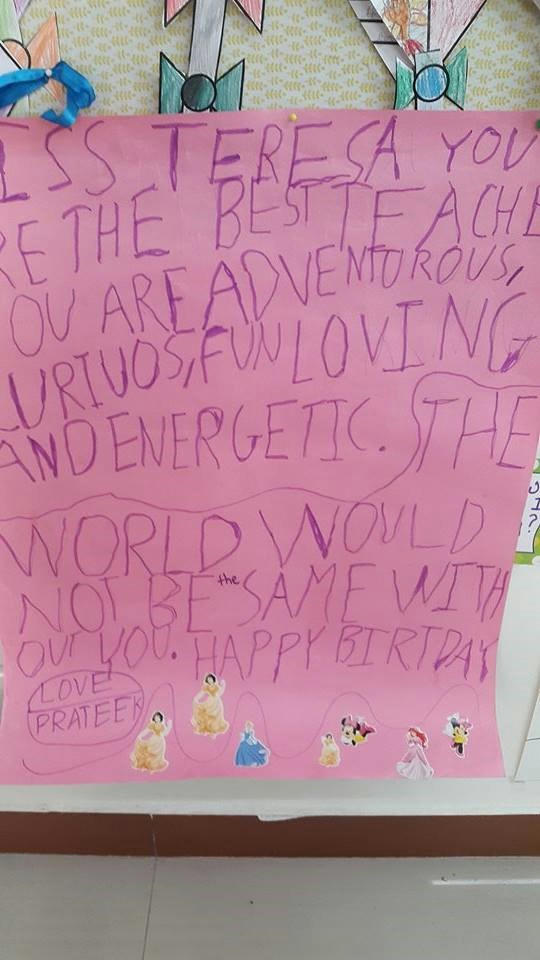 ISS TERESA YOU
RE THE BEST TEACHE
OU ARE ADVENTOROUS,
URIUOS, FUN LOVING
AND ENERGETIC. THE
WORLD WOULD
NOT BE the SAME WITH
OUT YOU. HAPPY BIRTDAY
LOVE
PRATEEK